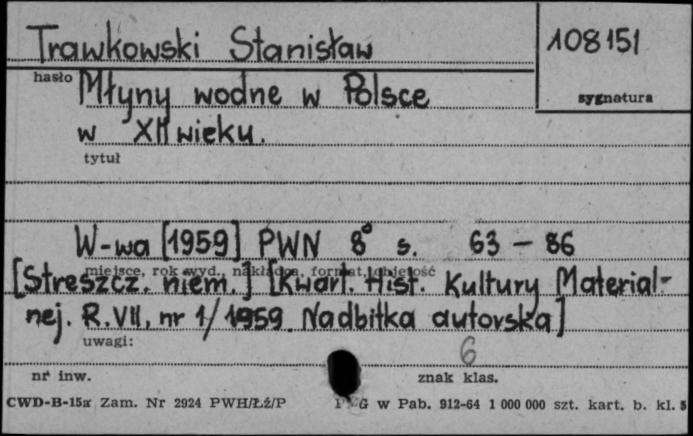 Trawkowski Stanisław
108151
hasło
sygnatura
Młyny wodne w Polsce
w XII wieku.
tytuł
W-wa [1959] PWN 8° s. 63 – 86
miejsce, rok wyd., nakładca, format, objętość
[Streszcz. niem.] [Kwart. Hist. Kultury Material-
nej. R. VII, nr 1/1959. Nadbitka autorska]
uwagi:
6
nr inw.
znak klas.
CWD-B-15a Zam. Nr 2924 PWH/Łż/P
G w Pab. 912-64 1 000 000 szt. kart. b. kl. 5